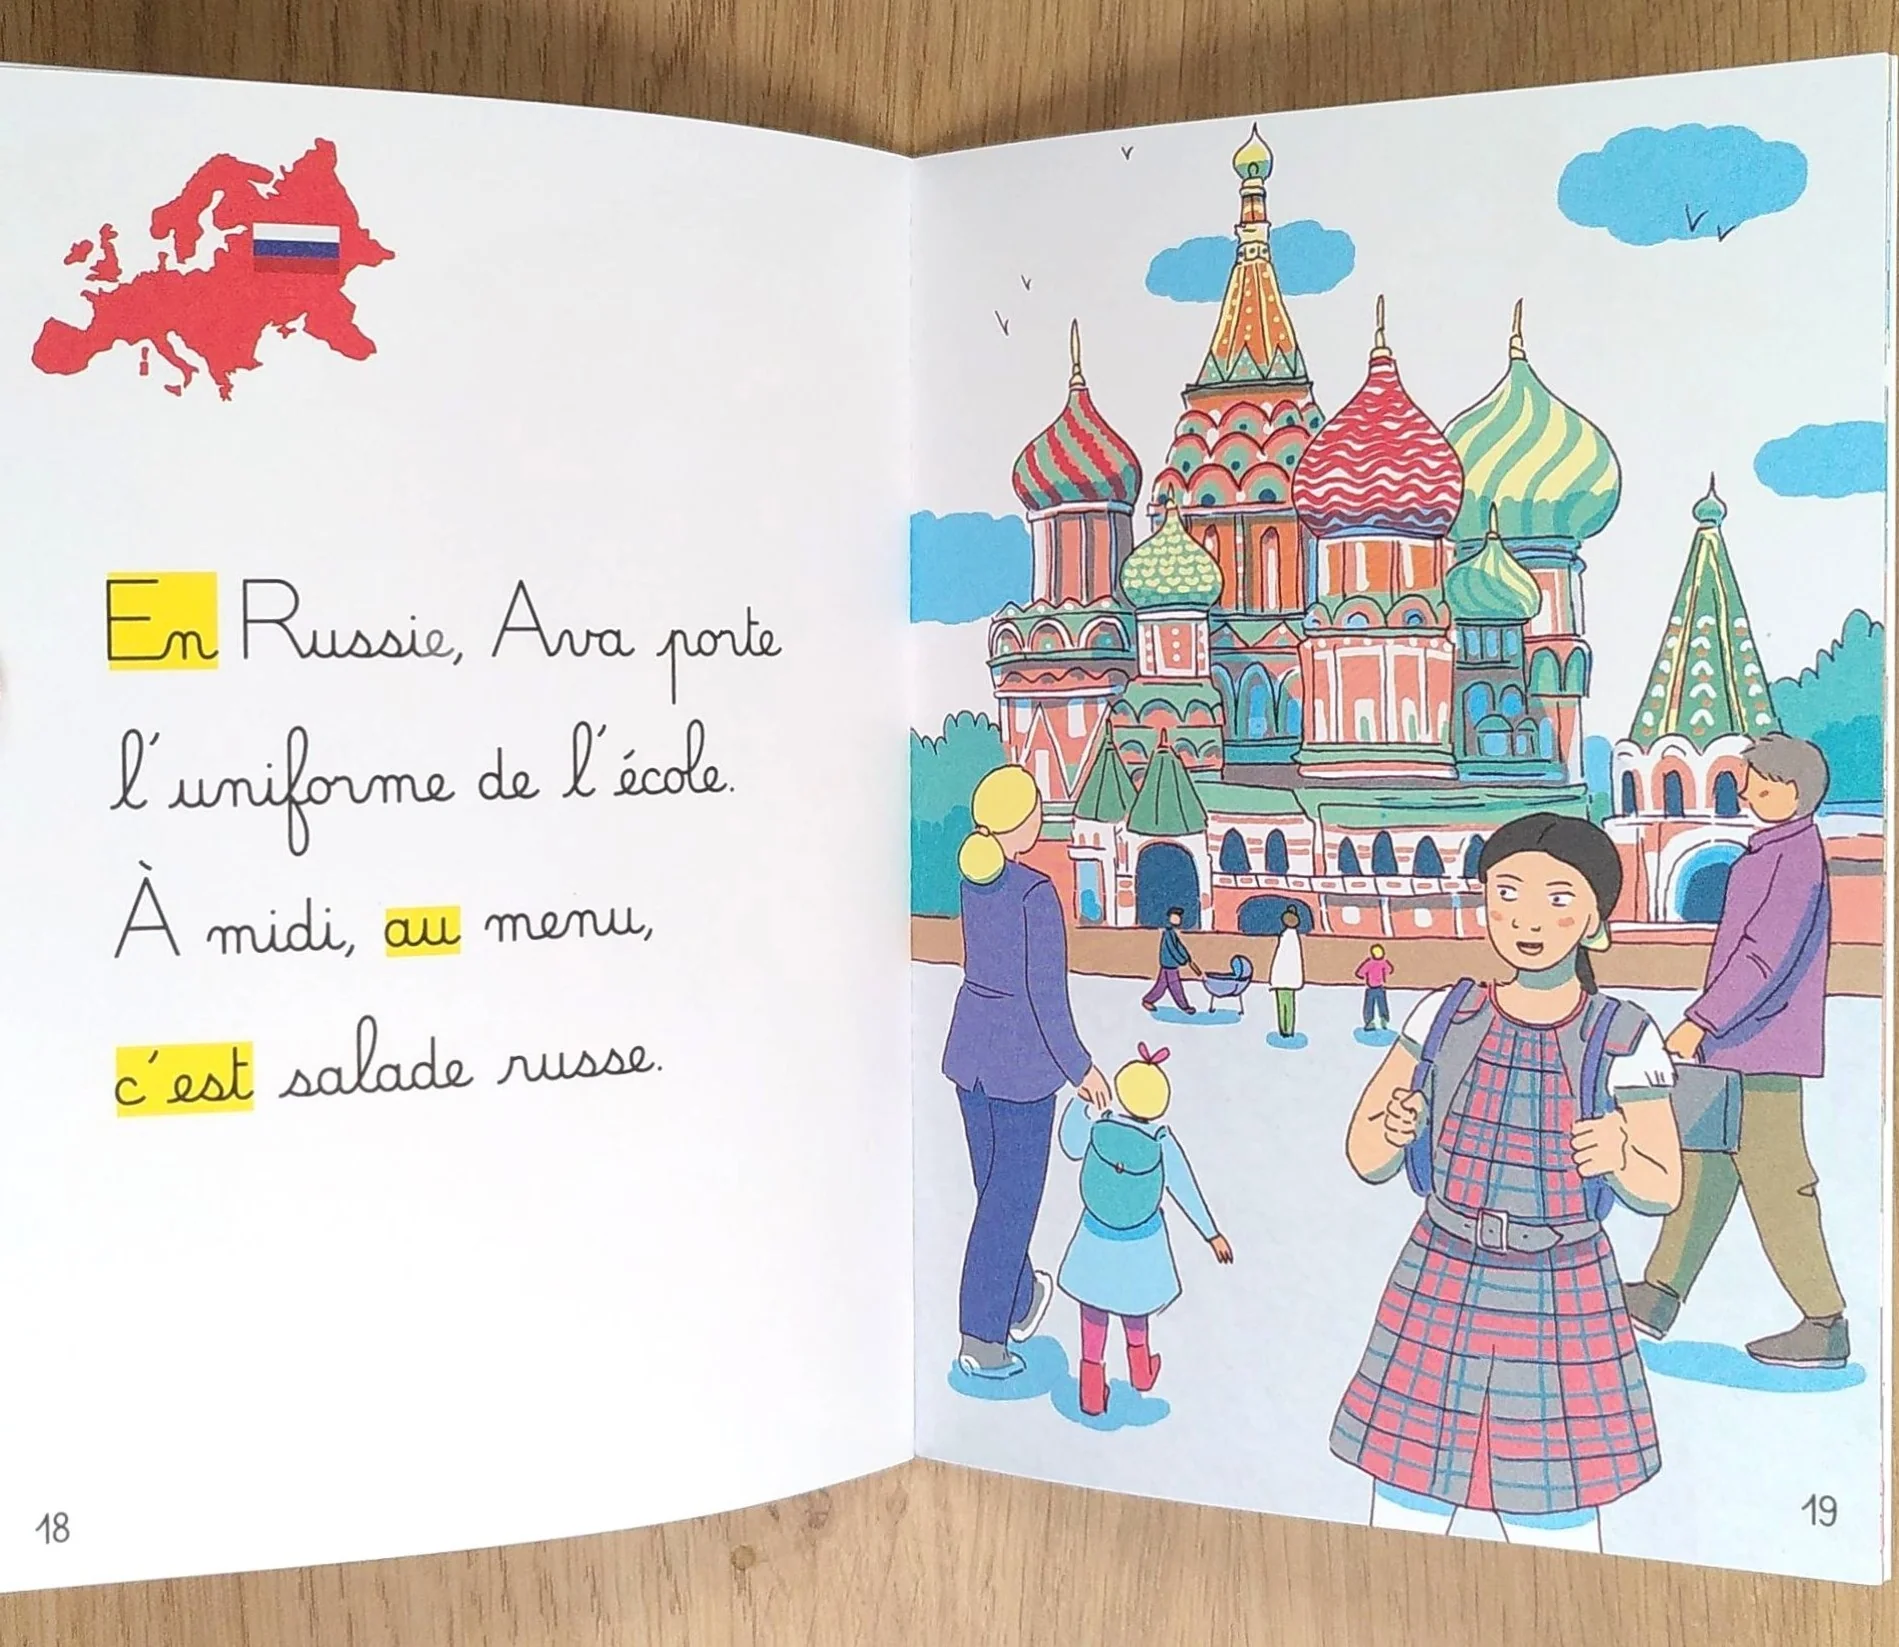 En Russie, Ava porte
l'uniforme de l'école.
À midi, au menu,
c'est salade russe.
18
19